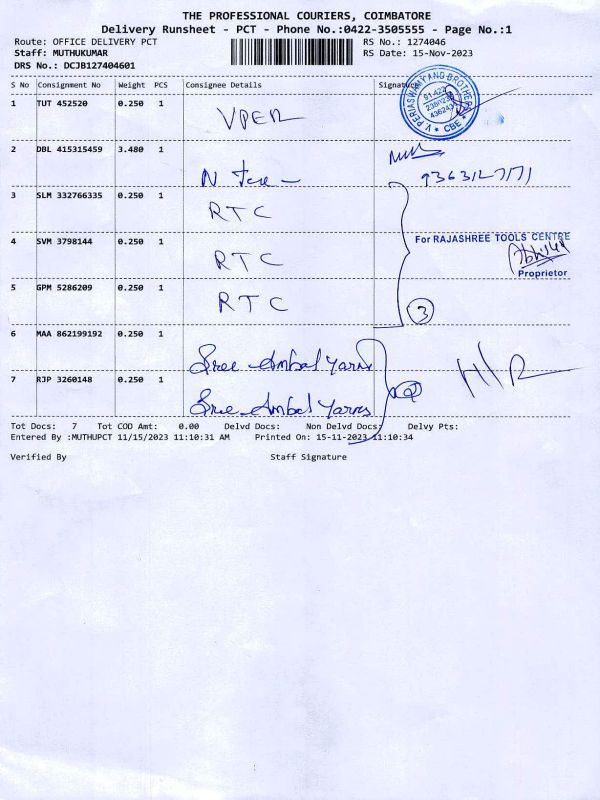 THE PROFESSIONAL COURIERS, COIMBATORE
Delivery Runsheet - PCT - Phone No.:0422-3505555 - Page No.:1
Route: OFFICE DELIVERY PCT RS No.: 1274046
Staff: MUTHUKUMAR RS Date: 15-Nov-2023
DRS No.: DCJB127404601
S No Consignment No Weight PCS Consignee Details Signature
1 TUT 452520 0.250 1 VPER
V. PERIASWAMY AND BROTHERS
CBE
2 DBL 415315459 3.480 1
3 SLM 332766335 0.250 1 RTC
4 SVM 3798144 0.250 1 RTC
For RAJASHREE TOOLS CENTRE
Proprietor
5 GPM 5286209 0.250 1 RTC
3
6 MAA 862199192 0.250 1 Sree Ambal Yarns
7 RJP 3260148 0.250 1 Sree Ambal Yarns
Tot Docs: 7 Tot COD Amt: 0.00 Delvd Docs: Non Delvd Docs: Delvy Pts:
Entered By :MUTHUPCT 11/15/2023 11:10:31 AM Printed On: 15-11-2023 11:10:34
Verified By Staff Signature